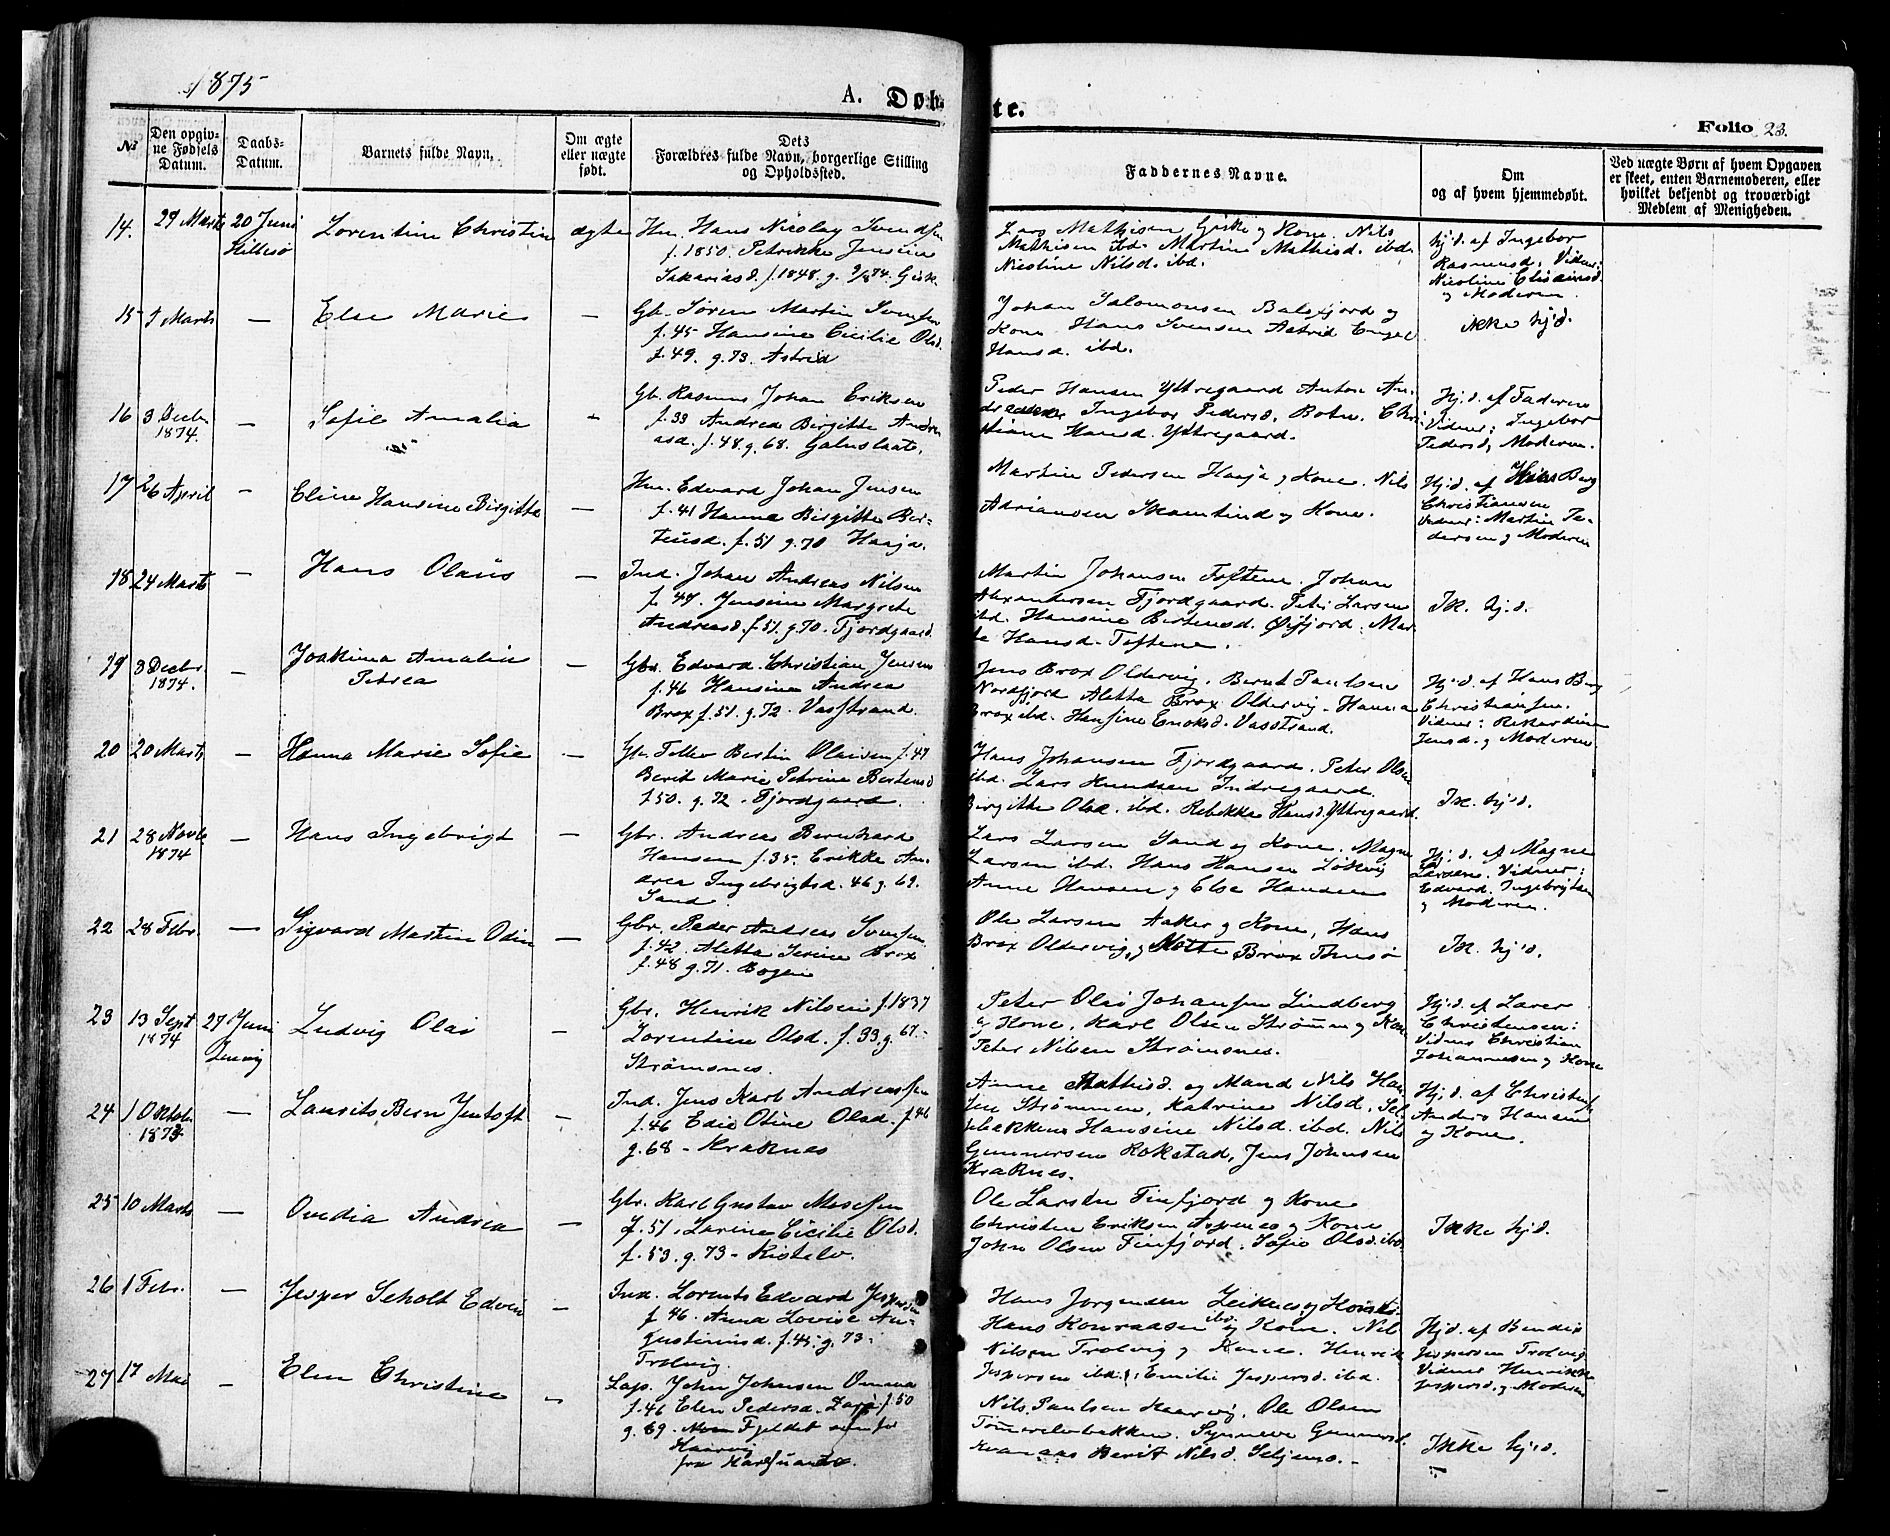 1875
A. Døb
te.
Folio 23.
No
Den opgiv-
ne Fødsels
Datum.
Daabs-
Datum.
Barnets fulde Navn.
Om ægte
eller uægte
født.
Dets
Forældres fulde Navn, borgerlige Stilling
og Opholdssted.
Faddernes Navne.
Om
og af hvem hjemmedøbt.
Ved uægte Børn af hvem Opgaven
er skeet, enten Barnemoderen, eller
hvilket bekjendt og troværdigt
Medlem af Menigheden.
14. 29 Marts 20 Juni
Hillesø
Lorentine Christin ægte
Hm. Hans Nicolay Svendsen
f. 1850. Petrikke Jensine
Sakariasd. f. 1848. g. 74. Gisk.
Lars Mathisen Giske og Kone. Nils
Mathisen ibd. Martine Mathisd. ibd.
Nicoline Nilsd. ibd.
hjd. af Ingebor
Rasmusd. Vidner:
Nicoline
og Moderen.
15 Marts —
Else Marie —
Gb. Søren Martin Svensen
f. 45 Hansine Cecilie Olsd.
f. 49. g. 73. Astrid
Johan Salomonsen Balsfjord og
Kone. Hans Svensen Astrid Engel
Hansd. ibd.
ikke hjd.
16 3 Decbr
1874. —
Sofie Amalia —
Gb. Rasmus Johan Eriksen
f. 33 Andrea Birgitte Andre
asd. f. 48 g. 68.
Peder Hansen Yttregaard Anton An-
Ingebor Pedersd. Botn. Chri
stiane Hansd. Yttregaard.
Hjd. af Faderen
Vidner: Ingebor
Pedersd. Moderen.
17 26 April —
Eline Hansine Birgitte —
Hm. Edvard Johan Jensen
f. 41 Hanna Birgitte Ber-
teusd. f. 51 g. 70 Haaja.
Martin Pedersen Haaja og Kone. Nils
Adriansen og Kone.
Hjd. af Hans Berg
Christiansen
Vidner: Martin Pe-
dersen og Moderen
18 24 Marts —
Hans Olaus —
Ind. Johan Andreas Nilsen
f. 47. Jensine Margrete
Andreasd. f. 51. g. 70. Fjordgaard.
Martin Johansen Toftene. Johan
Alexandersen Fjordgaard. Peter Larsen
ibd. Hansine Bertensd. Øifjord. Mar
te Hansd. Toftene.
Ik. hjd.
19 3 Decbr
1874. —
Joakima Amalie
Petrea —
Gbr. Edvard Christian Jensen
f. 46 Hansine Andrea
Brox f. 51. g. 72. Vasstrand.
Jens Brox Oldervig. Bernt Paulsen
Nordfjord Aletta Brox Oldervig. Hanna
Brox ibd. Hansine Enoksd. Vasstrand.
Hjd. af Hans Berg
Christiansen.
Vidner: Rikkardine
Jensd. og Moderen
20 20 Marts —
Hanna Marie Sofie —
Gbr. Peder Bertin Olaisen f. 47
Berit Marie Petrine Bertensd
f. 50. g. 72. Fjordgaard.
Hans Johansen Fjordgaard. Peter Olsen
ibd. Lars Knudsen Indregaard.
Birgitte Olsd. ibd. Rebekka Hansd. Yttregaard.
Ik. hjd.
21 28 Novbr
1874 —
Hans Ingebrigt —
Gbr. Andreas Bernhard
Hansen f. 35 Erikke An-
drea Ingebrigtsd. 46 g. 69.
Sand.
Lars Larsen Sand og Kone. Magne
Larsen ibd. Hans Hansen Løkvig
Anne Hansen og Else Hansen
Hjd. af Magne
Larsen. Vidner:
Edvard Ingebrigtsen
og Moderen.
22 28 Febr. —
Sigvard Martin Odin —
Gbr. Peder Andreas Svensen
f. 42. Aletta Serine Brox
f. 48 g. 71. Bogen
Ole Larsen Aaker og Kone, Hans
Brox Oldervig, Brox
Ik. hjd.
23 13 Sept
1874 27 Juni
Lenvig
Ludvig Olai —
Gbr. Henrik Nilsen f. 1837
Lorentine Olsd. f. 33. g. 67.
Strømsnes.
Peter Olai Johansen Lindberg
og Kone. Karl Olsen Strømmen og Kone
Peter Nilsen Strømsnes.
Hjd. af Lærer
Christensen:
Vidner Christian
Johannesen og Kone
24 1 Oktob.
1873 —
Laurits Bern Jentoft —
Ind. Jens Karl Andreassen
f. 46 Edie Otine Olsd. f. 46
g. 68 - Kraknes
Anne Mathisd. og Mand Nils Han-
sen Strømmen, Katrine Nilsd. Sel-
bakken Hansine Nilsd. ibd. Nils
Gunnersen Rokstad, Jens Johnsen
Kraknes.
Hjd. af Christen
Anders Hansen
og Kone.
25 10 Marts —
Ovedia Andrea —
Gbr. Karl Gustav Mosesen
f. 51. Larine Cecilie Olsd.
f. 53. g. 73 - Kistelv.
Ole Larsen Finfjord og Kone
Christen Eriksen Aspenes og Kone
John Olsen Finfjord. Sofie Olsd. ibd.
Ikke hjd.
26 1 Febr. —
Jesper Scholt Edvin —
Ind. Lorents Edvard Jespersen
f. 46. Anna Lovise Au-
gustinusd. f. 45 g. 73.
Trolvig.
Hans Jørgensen Leiknes og Kone
Hans Konradsen ibd og Kone. Nil
Nilsen Trolvig og Kone. Henrik
Jespersen ibd. Emilie Jespersd. ibd.
Hjd. af Bendix
Jespersen Trolvig
Vidner Henrikke
Jespersd. og Moderen
27 17 Mai —
Elen Christine —
Lap. John Johnsen Omma
f. 46 Elen Pedersd. f. 50
g. 69. Fjeldet
Haarvig
fra
Nils Paulsen Haarvig. Ole Olsen
Tømmerelvbakken. Synneve Gunnersd.
Kvanaas Berit Nilsd. Seljenes.
Ikke hjd.